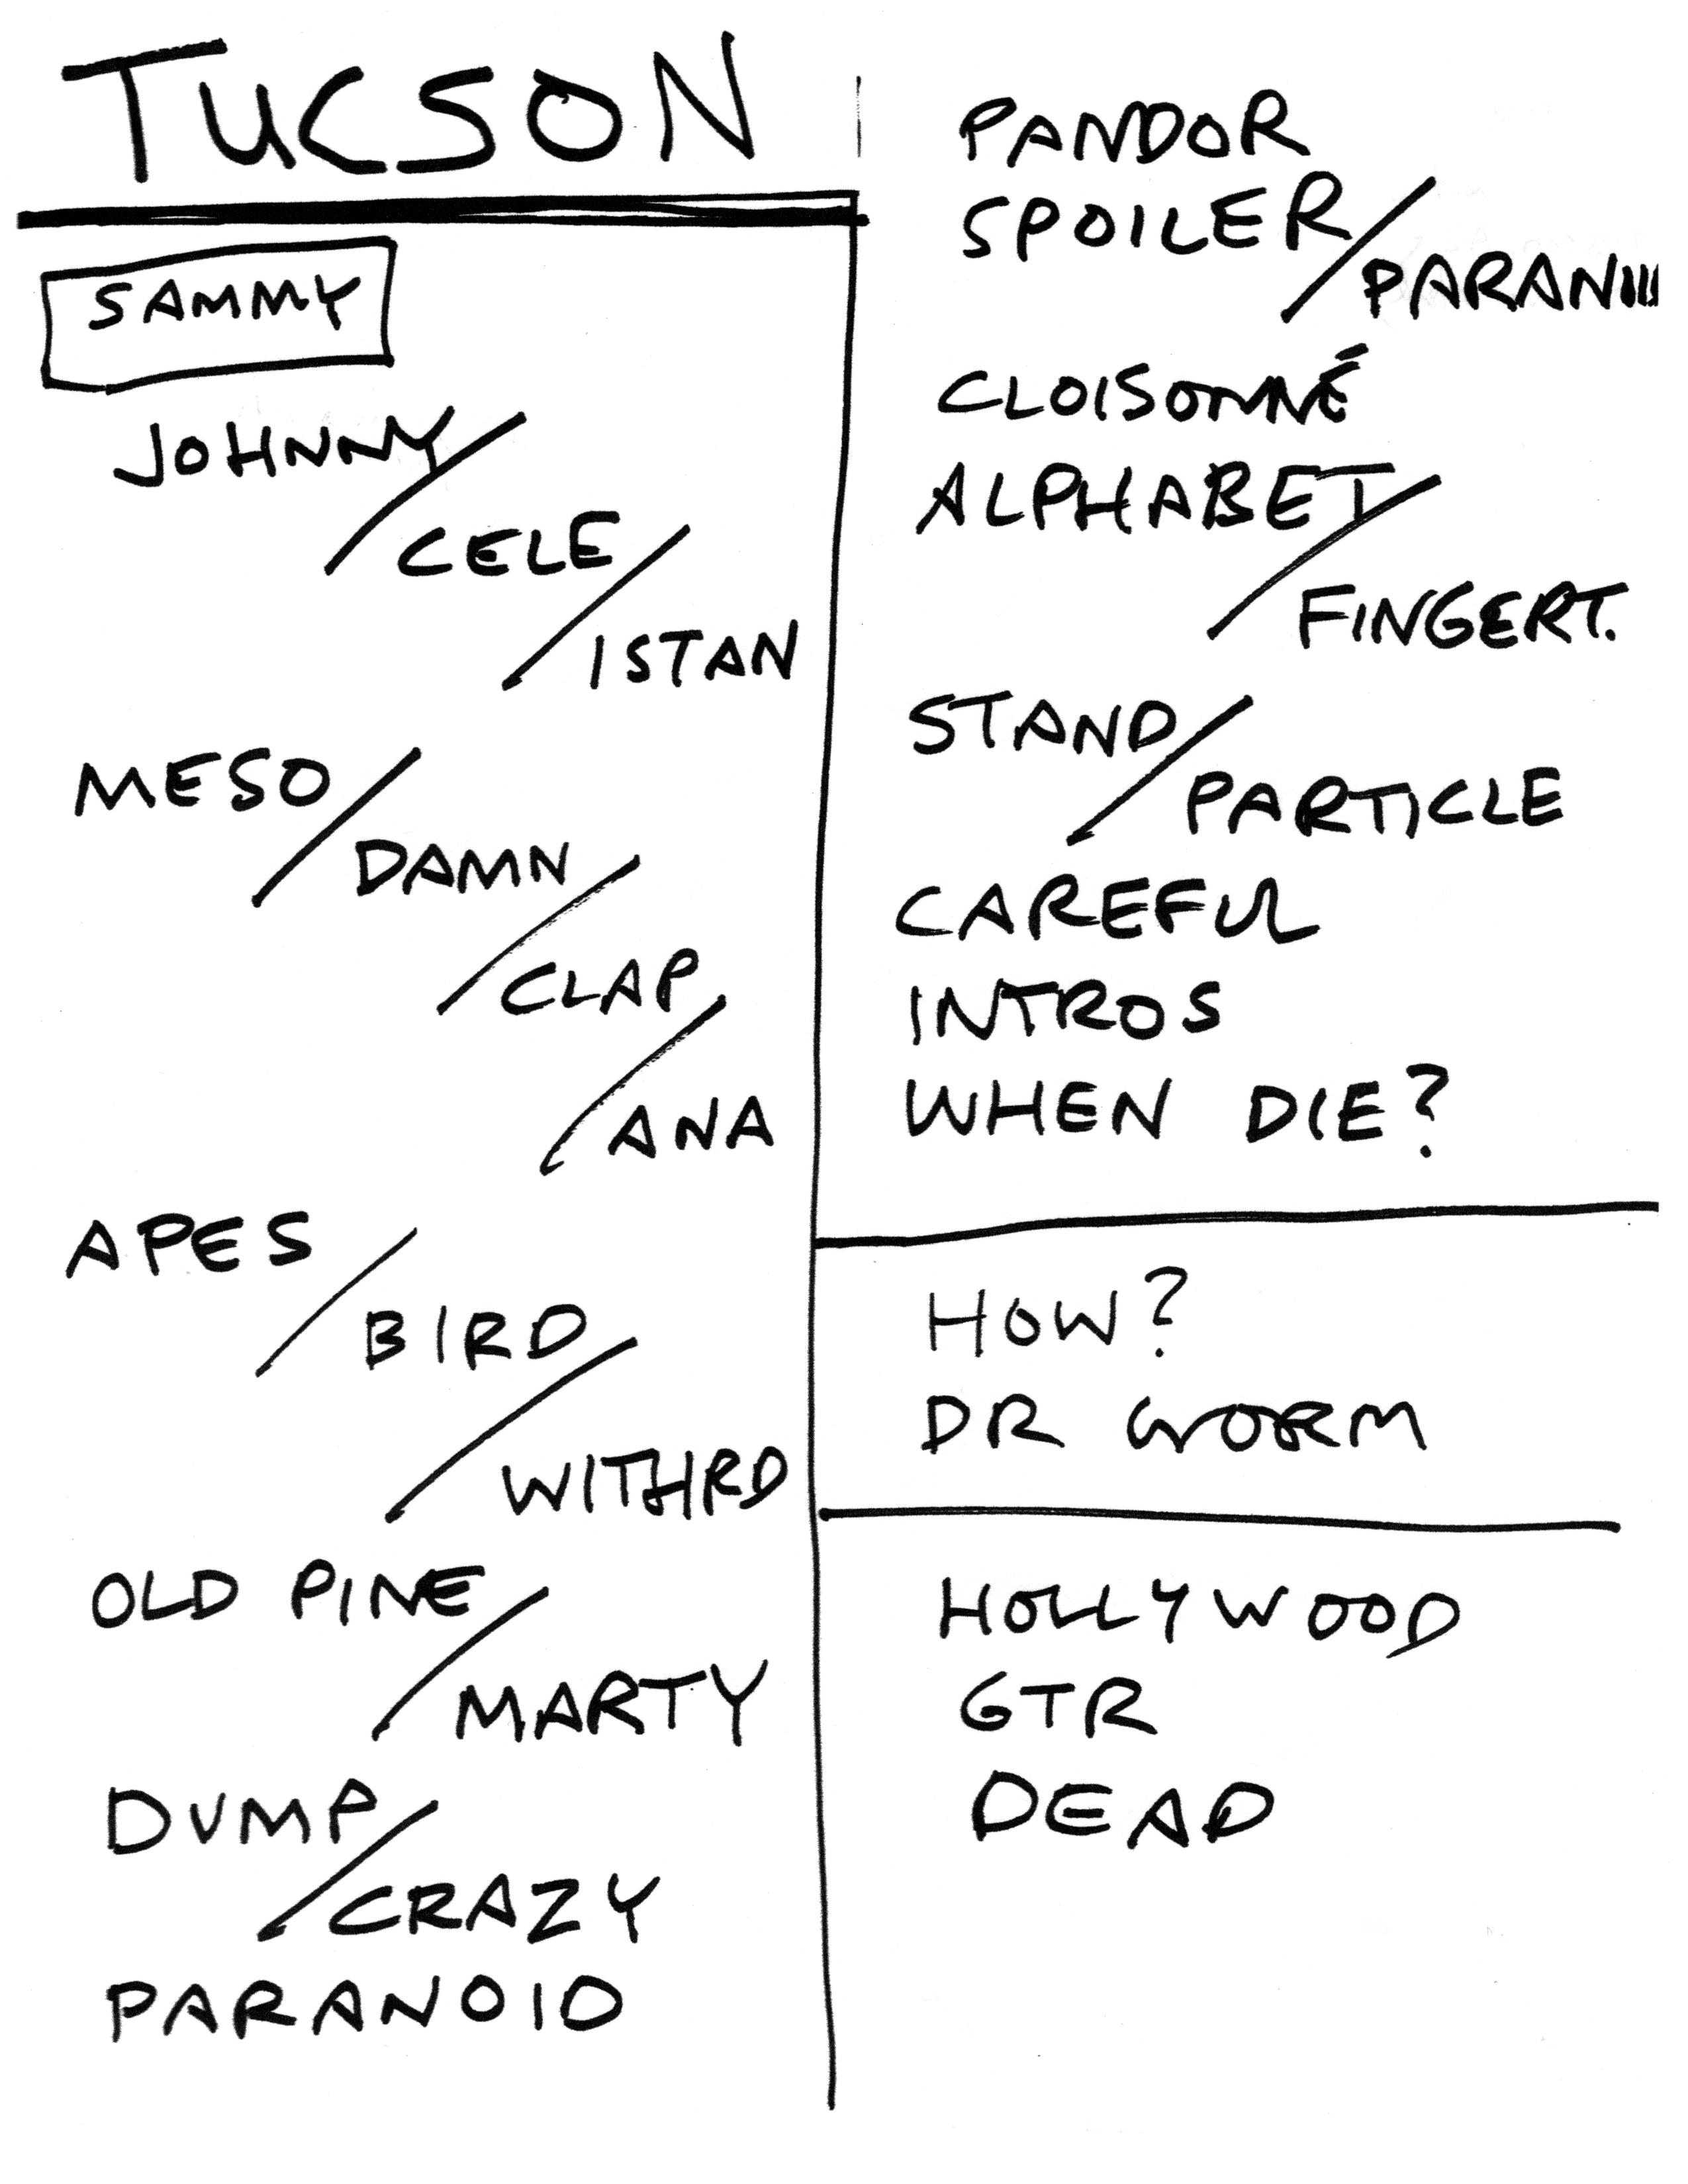 TUCSON
SAMMY
JOHNNY/
CELE/
ISTAN
MESO/
DAMN/
CLAP/
ANA
APES/
BIRD/
WITHRD
OLD PINE/
MARTY
DUMP/
CRAZY
PARANOID
PANDOR
SPOILER/
PARANIII
CLOISONNÉ
ALPHABET/
FINGERT.
STAND/
PARTICLE
CAREFUL
INTROS
WHEN DIE?
HOW?
DR WORM
HOLLYWOOD
GTR
DEAD